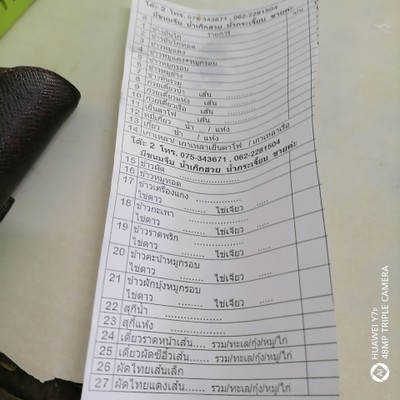 โต๊ะ 2 โทร. 075-343671 , 062-2281504
มีขนมจีน น้ำเก๊กฮวย น้ำกระเจี๊ยบ ขายค่ะ
รายการ
ข้าวมันไก่
ข้าวมันไก่ทอด
ข้าวหมูแดง
ข้าวหมูแดง+หมูกรอบ
ข้าวหมูกรอบ
10 ก๋วยเตี๋ยวเรือ เส้น
11 เย็นตาโฟ เส้น
12 หมี่เกี๊ยว
13 เกี๊ยว น้ำ .. / แห้ง
14 เกาเหลา/ เกาเหลาเย็นตาโฟ / เกาเหลาเรือ
โต๊ะ 2 โทร. 075-343671 , 062-2281504
มีขนมจีน น้ำเก๊กฮวย น้ำกระเจี๊ยบ ขายค่ะ
15 ข้าวผัด ....................
16 ข้าวหมูทอด
17 ข้าวเครื่องแกง
ไข่ดาว ........ ไข่เจียว .....
18 ข้าวกะเพรา
ไข่ดาว ........ ไข่เจียว .....
19 ข้าวราดพริก
ไข่ดาว ........ ไข่เจียว .....
20 ข้าวคะน้าหมูกรอบ
ไข่ดาว ........ ไข่เจียว .....
21 ข้าวผักบุ้งหมูกรอบ
ไข่ดาว ........ ไข่เจียว .....
22 สุกี้น้ำ ............
23 สุกี้แห้ง ............
24 เตี๋ยวราดหน้าเส้น..... รวม/ทะเล/กุ้ง/หมู/ไก่
25 เตี๋ยวผัดซีอิ๊วเส้น..... รวม/ทะเล/กุ้ง/หมู/ไก่
26 ผัดไทยเส้นเล็ก
27 ผัดไทยแดงเส้น..... รวม/ทะเล/กุ้ง/หมู/ไก่
HUAWEI Y7p
48MP TRIPLE CAMERA